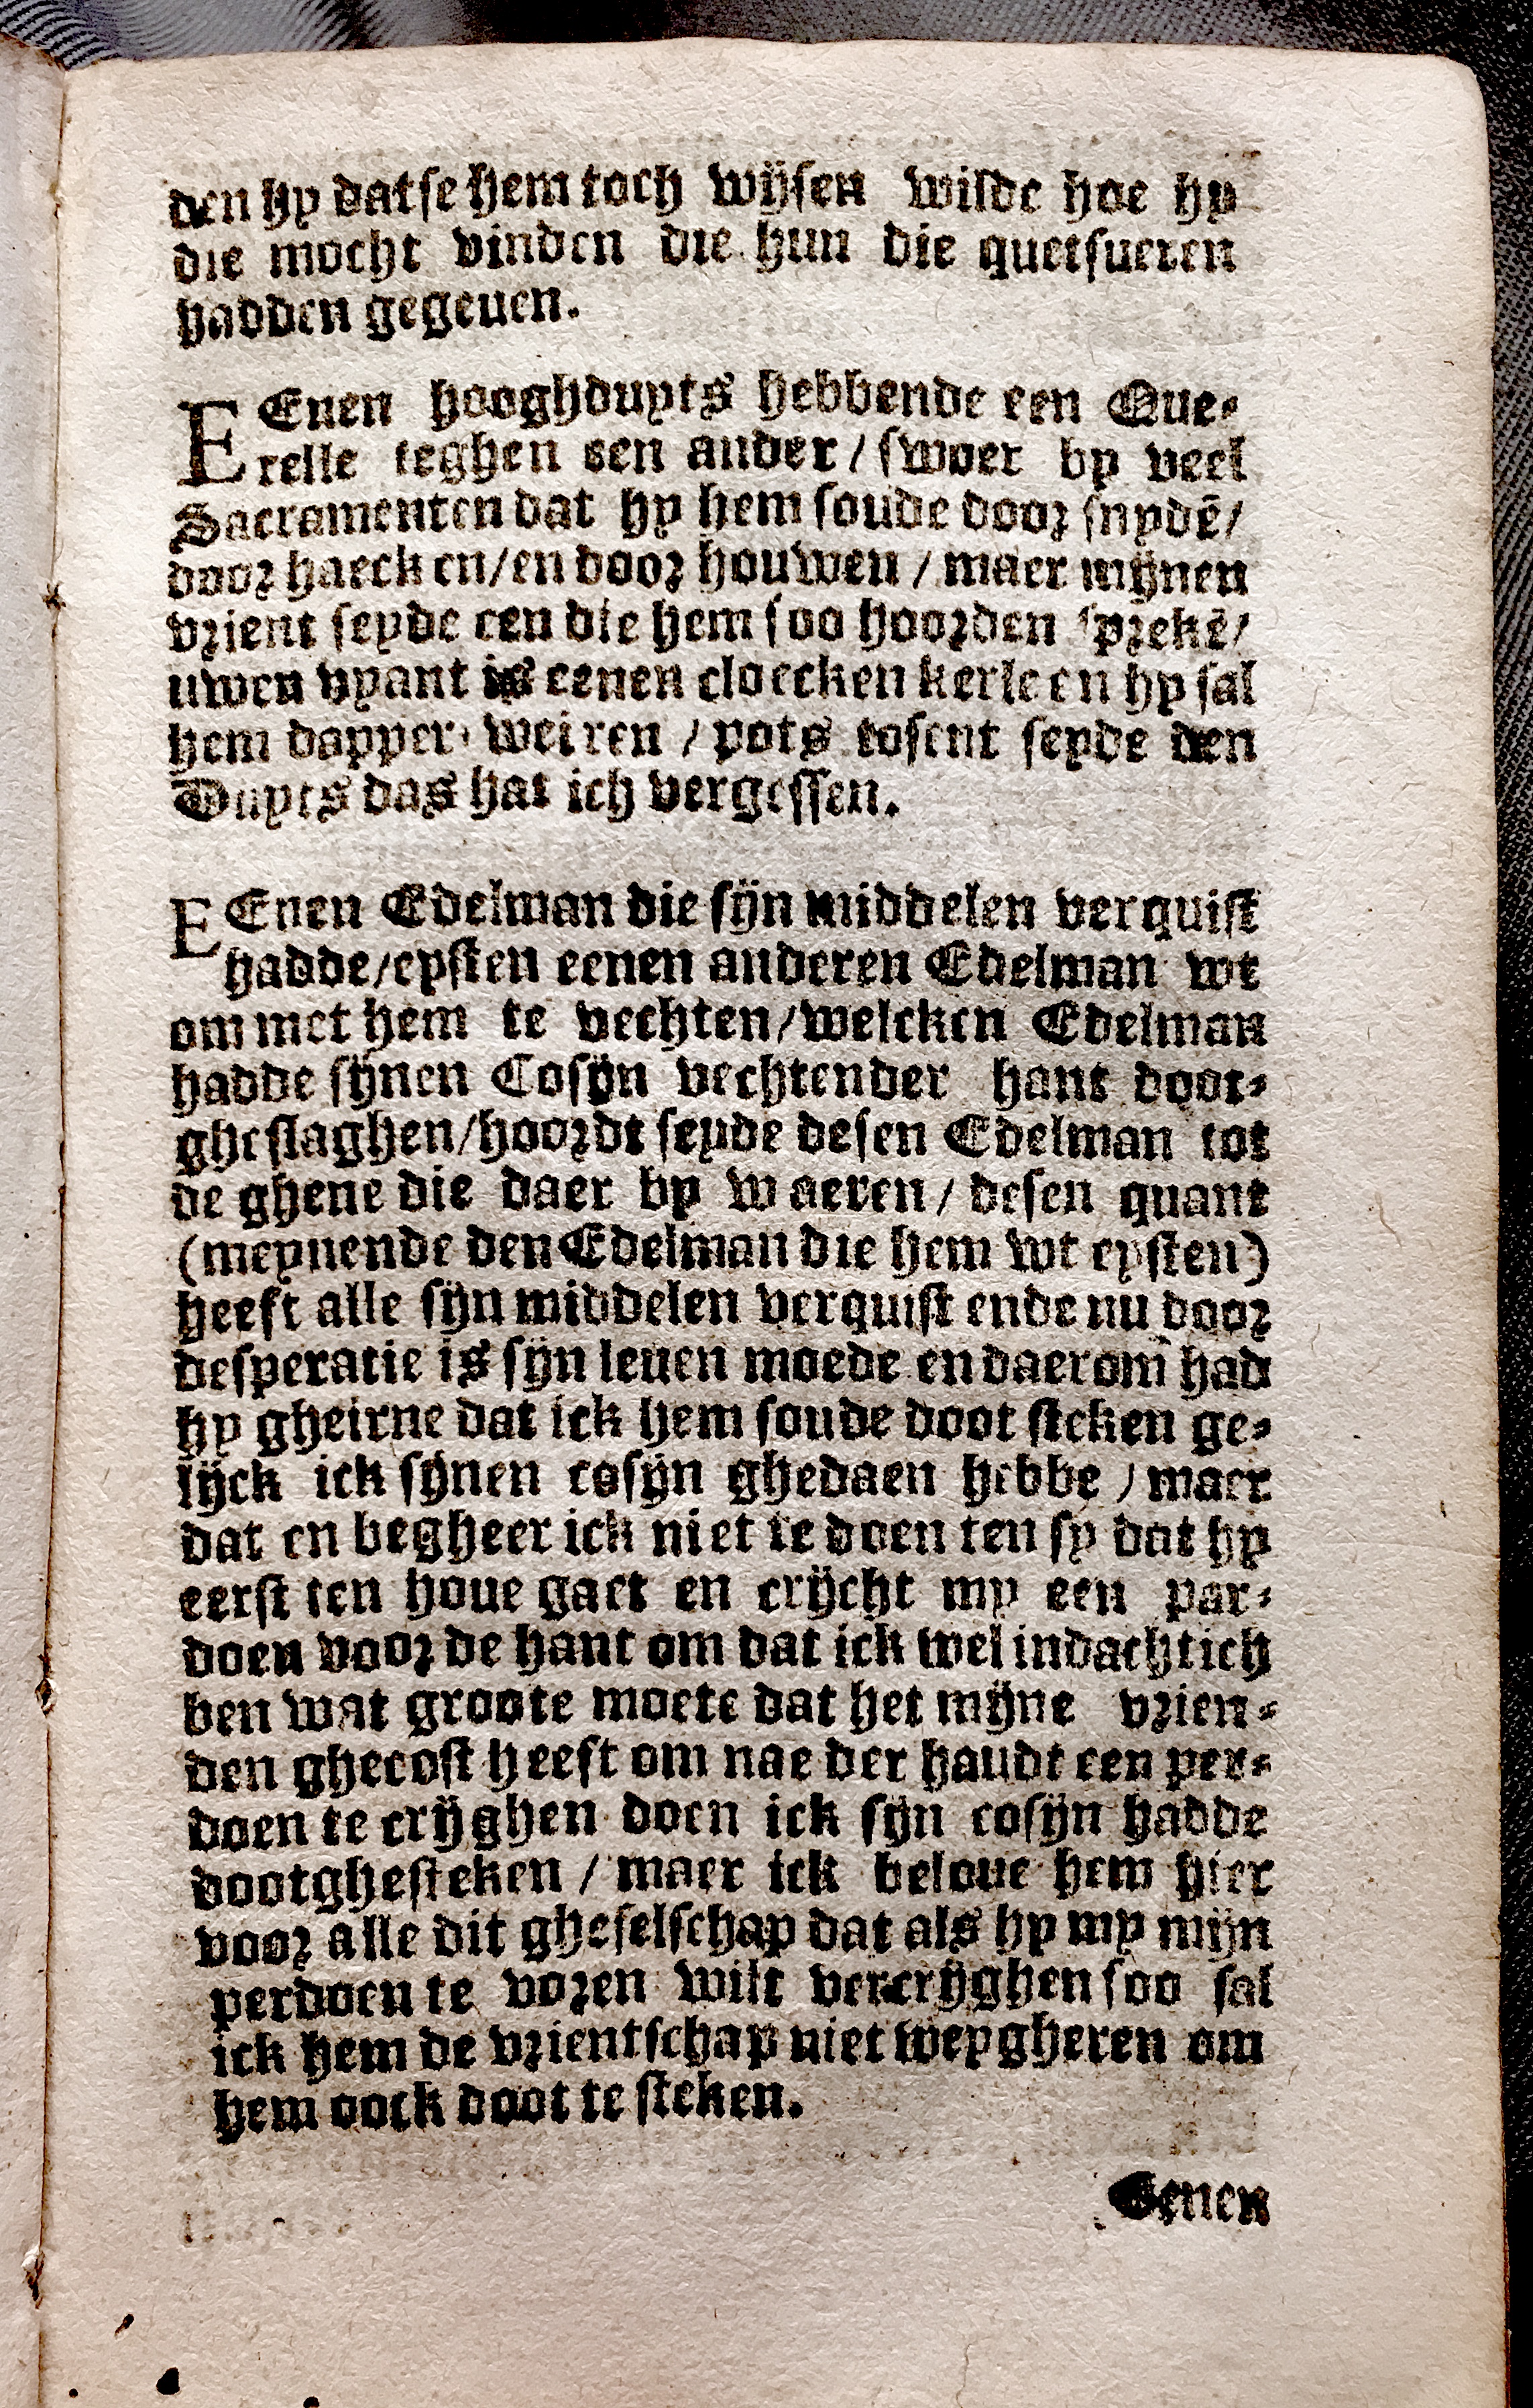 den hy dat se hem toch wijsen wilde hoe hy
die mocht vinden die hun die quetsueren
hadden gegeuen.
EEuen hooghduyts hebbende een Que-
relle teghen een ander / swoer by veel
Sacramenten dat hy hem soude door snydē/
door haecken/en door houwen / maer mijnen
vrient seyde een die hem soo hoorden sprekē/
uwen vyant is eenen cloecken kerle en hy sal
hem dapper weiren / pots tosent seyde den
Duyts das hat ich vergessen.
EEnen Edelman die sijn middelen verquist
hadde/eysten eenen anderen Edelman wt
om met hem te vechten/welcken Edelman
hadde sijnen Cosijn vechtender hant doot-
gheslaghen/hoordt seyde desen Edelman tot
de ghene die daer by waeren/ desen quant
(meynende den Edelman die hem wt eysten)
heeft alle sijn middelen verquist ende nu door
desperatie is sijn leuen moede en daerom had
hy gheirne dat ick hem soude doot steken ge-
lijck ick sijnen cosijn ghedaen hebbe / maer
dat en begheer ick niet te doen ten sy dat hy
eerst ten houe gaet en crijcht my een par-
doen voor de hant om dat ick wel indachtich
ben wat groote moete dat het mijne vrien-
den ghecost heeft om nae der handt een per-
doen te crijghen doen ick sijn cosijn hadde
dootghesteken / maer ick beloue hem hier
voor alle dit gheselschap dat als hy my mijn
perdoen te voren wilt vercrijghen soo sal
ick hem de vrientschap niet weygheren om
hem oock doot te steken.
Eenen